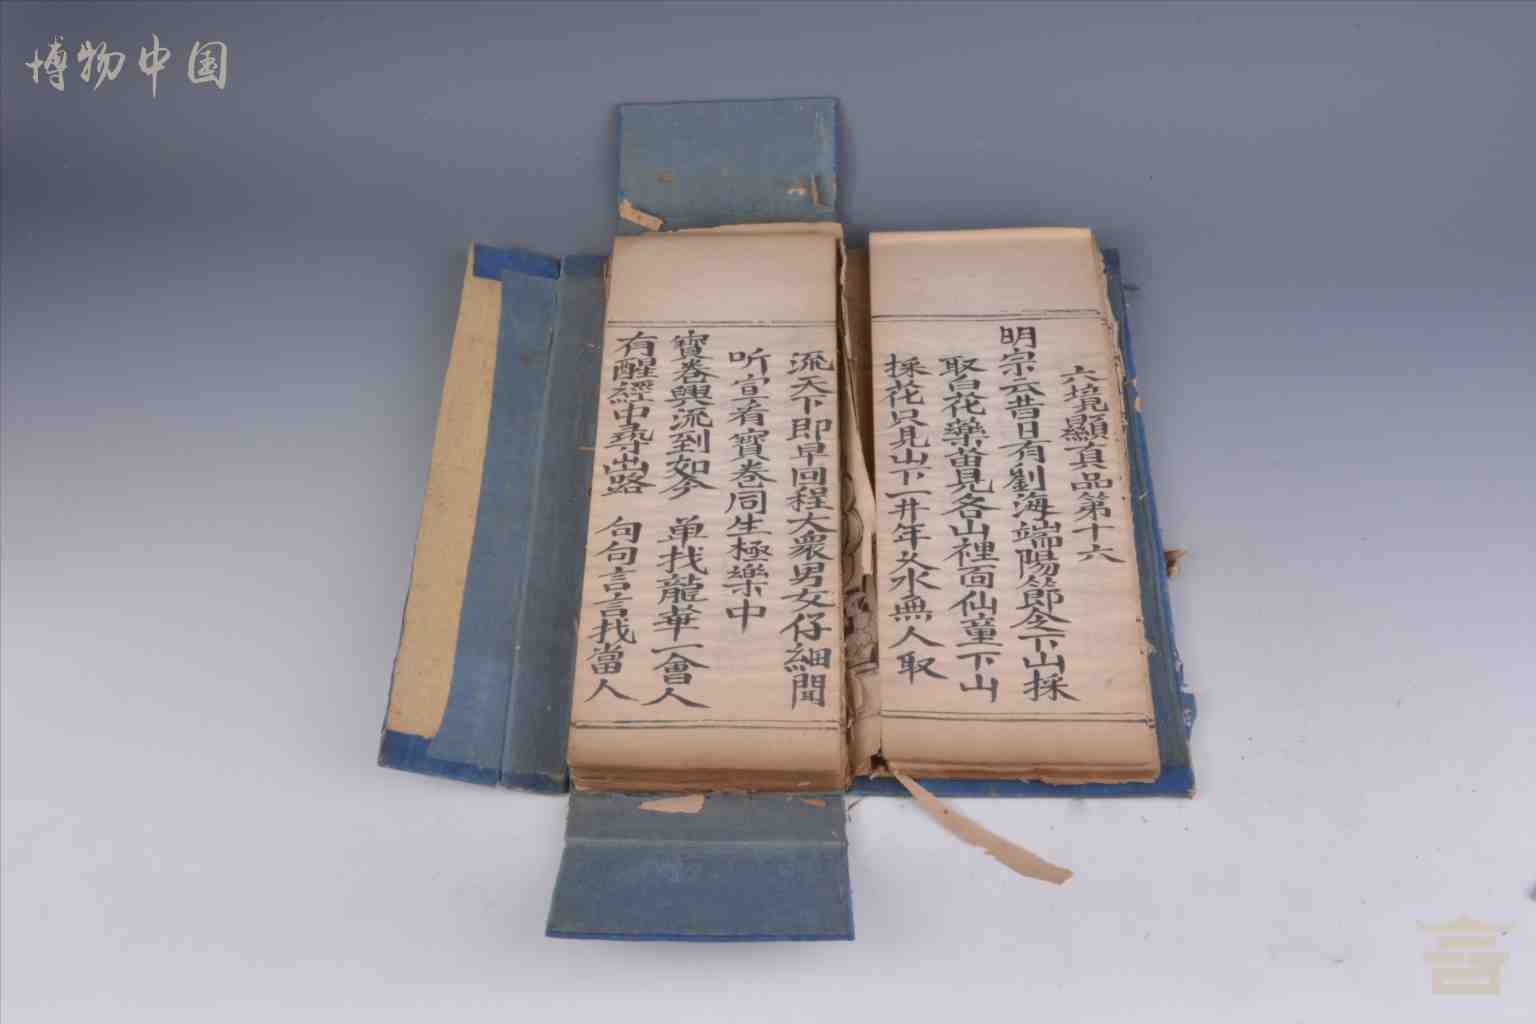 博物中国
六境顯真品第十六
明宗云昔日有劉海端陽節令下山採
取白花藥苗見各山裡面仙童下山
採花只見山下一井年久水無人取
流天下即早回程大衆男女仔細聞
听宣看寶卷同生極樂中
寶卷興流到如今 单找龍華一會人
有醒經中尋出路 句句言言找當人